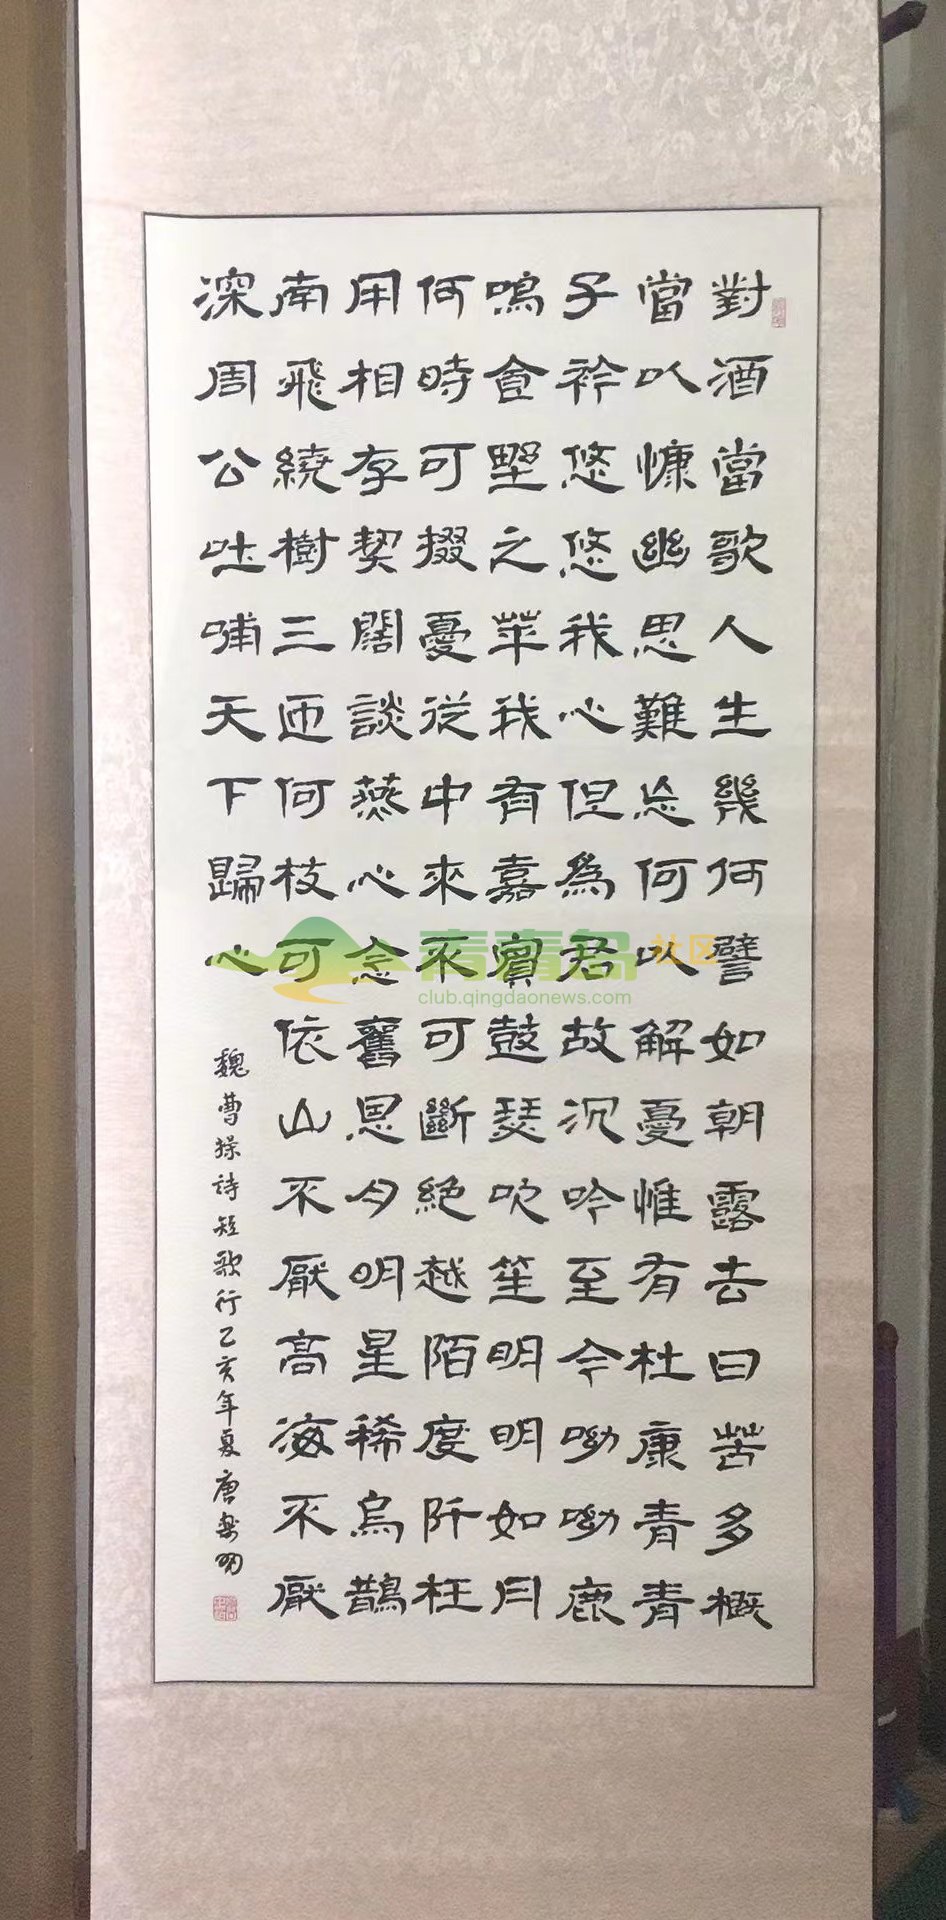 對酒當歌人生幾何譬如朝露去日苦多概
當以慷幽思難忘何以解憂惟有杜康青青
子衿悠悠我心但為君故沉吟至今呦呦鹿
鳴食野之苹我有嘉賓鼓瑟吹笙明明如月
何時可掇憂從中來不可斷絕越陌度阡枉
用相存契闊談燕心念舊恩月明星稀烏鵲
南飛繞樹三匝何枝可依山不厭高海不厭
深周公吐哺天下歸心
魏曹操詩短歌行乙亥年夏唐明
青青岛社区
club.qingdaonews.com